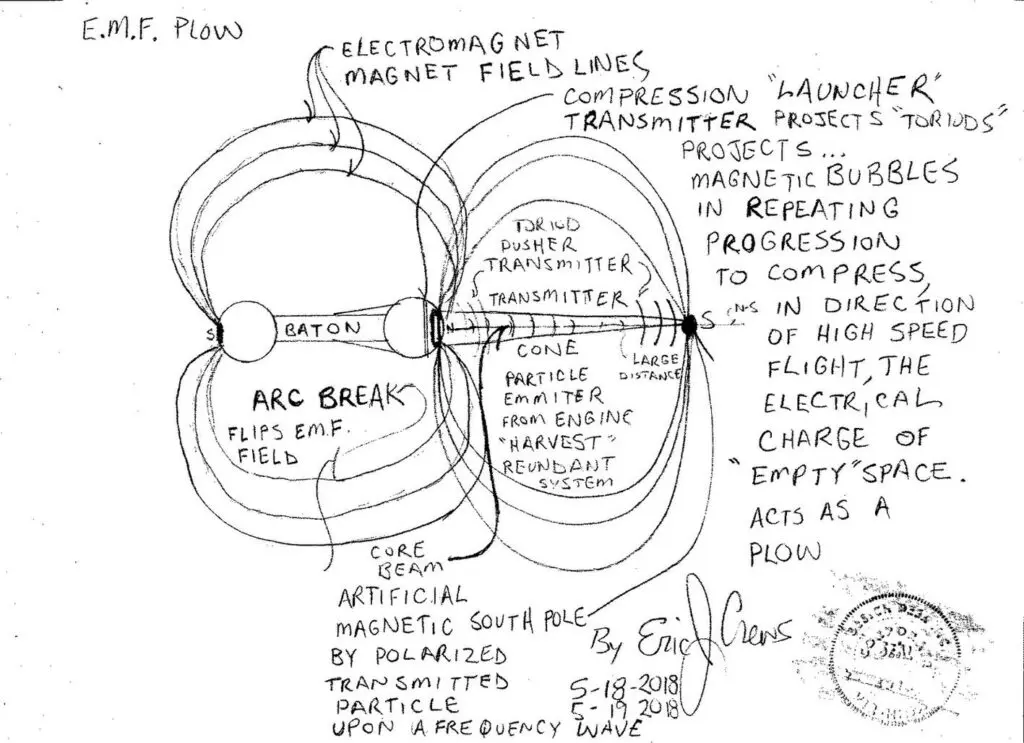 E.M.F. PLOW
ELECTROMAGNET
MAGNET FIELD LINES
COMPRESSION "LAUNCHER"
TRANSMITTER PROJECTS "TORIUDS"
PROJECTS...
MAGNETIC BUBBLES
IN REPEATING
PROGRESSION
TO COMPRESS,
IN DIRECTION
OF HIGH SPEED
FLIGHT, THE
ELECTRICAL
CHARGE OF
"EMPTY" SPACE.
ACTS AS A
PLOW
TORIUD
PUSHER
TRANSMITTER
TRANSMITTER
S
BATON
N
S
N-S
CONE
LARGE
DISTANCE
PARTICLE
EMMITER
FROM ENGINE
"HARVEST"
REUNDANT
SYSTEM
ARC BREAK
FLIPS E.M.F.
FIELD
CORE
BEAM
ARTIFICIAL
MAGNETIC SOUTH POLE
BY POLARIZED
TRANSMITTED
PARTICLE
UPON A FREQUENCY WAVE
By Eric Crews
5-18-2018
5-19 2018